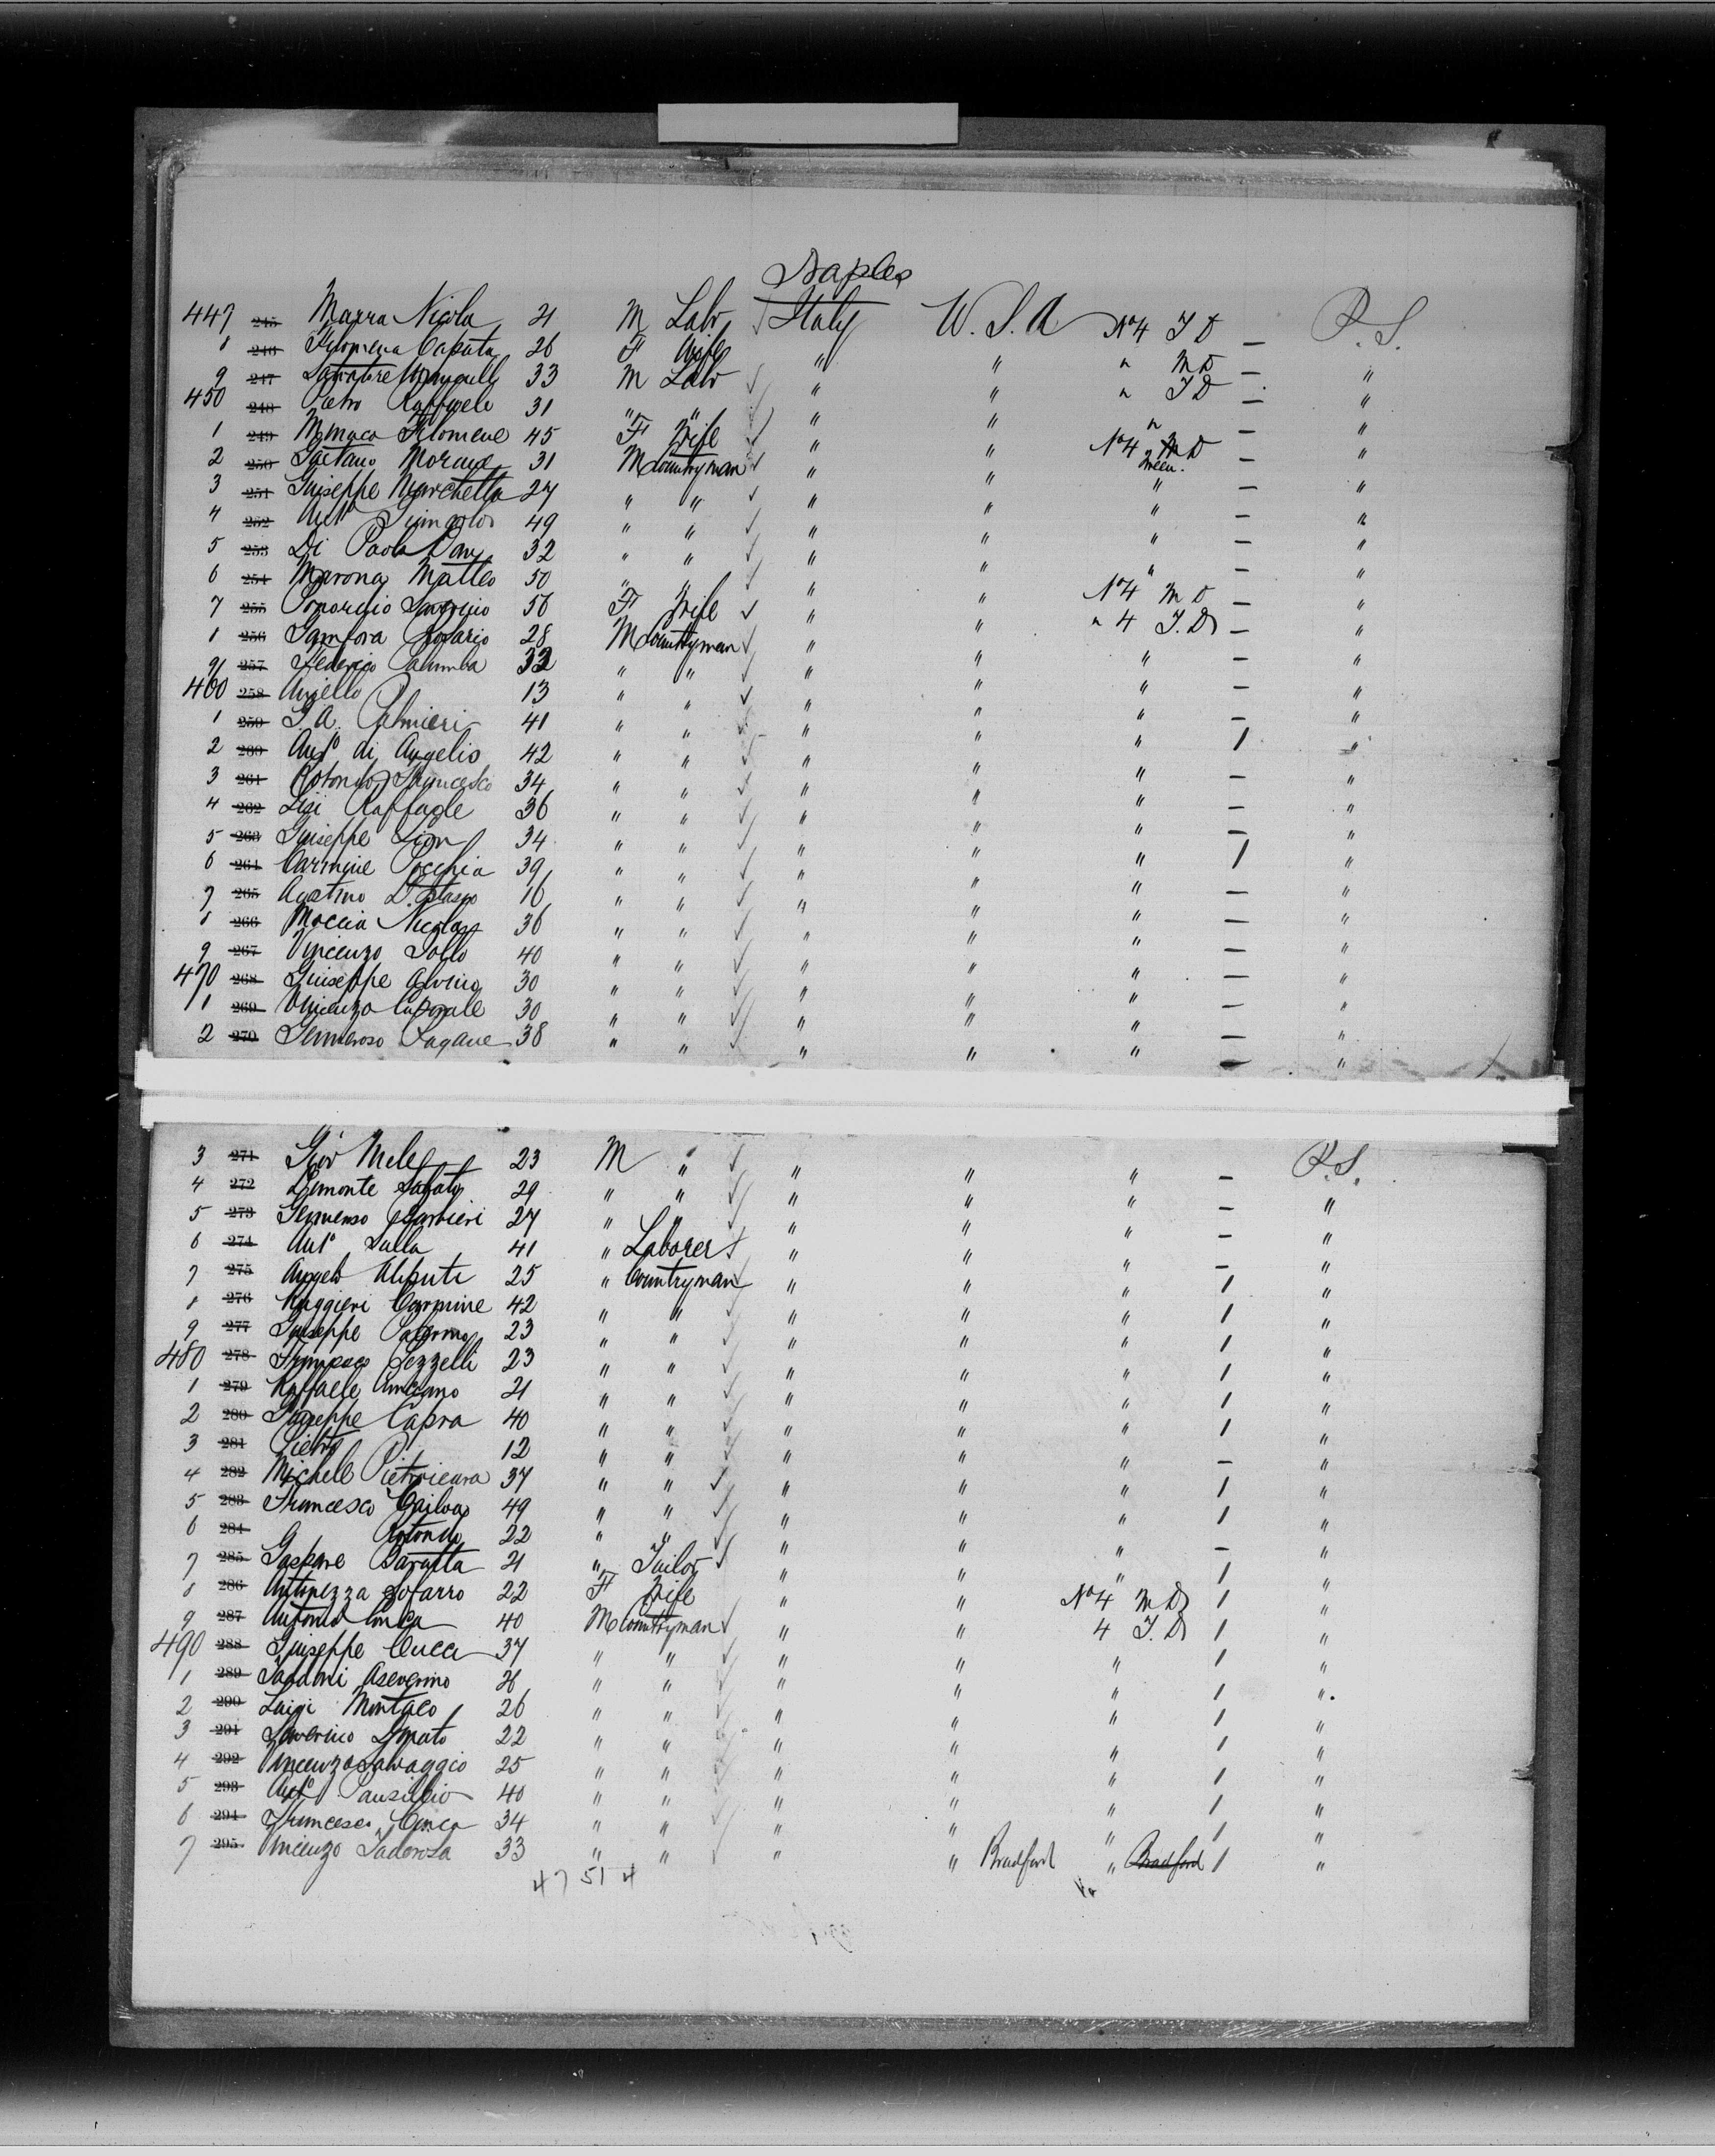 Naples
447 245 Marra Nicola 21 M Labr Italy U.S.A No4 T D — P.S.
8 246 Filomena Caputa 26 F Wife " " " M D — "
9 247 Salvatore 33 M Labr " " " T D — "
450 248 Pietro Raffaele 31 " " " " " — "
1 249 Monaco Filomene 45 F Wife " " No4 M D — "
2 250 Gaetano Morave 31 M Countryman " " — "
3 251 Guiseppe Marchetta 27 " " " " " — "
4 252 Anto 49 " " " " " — "
5 253 Di Paola 32 " " " " " — "
6 254 Marona Matteo 50 " " " " " — "
7 255 56 F Wife " " No4 M D — "
8 256 Rosario 28 M Countryman " " " 4 T.D. — "
9 257 Federico Palumba 32 " " " " " — "
460 258 Aniello 13 " " " " " — "
1 259 G.A. Palmieri 41 " " " " " — "
2 260 Anto di Angelis 42 " " " " " 1 "
3 261 Rotondo Francesco 34 " " " " " — "
4 262 Ligi Raffaele 36 " " " " " — "
5 263 Guiseppe Lion 34 " " " " " — "
6 264 Carmine Pocchia 39 " " " " " 1 "
7 265 Agostino 16 " " " " " — "
8 266 Moccia Nicolas 36 " " " " " — "
9 267 Vincenzo 40 " " " " " — "
470 268 Guiseppe Alvino 30 " " " " " — "
1 269 Vincenzo 30 " " " " " — "
2 270 Generoso Pagane 38 " " " " " — "
3 271 Giov Mele 23 M " " " " — P.S.
4 272 Lemonte Sabato 29 " " " " " — "
5 273 Barbieri 27 " " " " " — "
6 274 Anto 41 " Laborer " " " — "
7 275 Angelo Aliputi 25 " Countryman " " " 1 "
8 276 Ruggieri Carmine 42 " " " " " 1 "
9 277 Guiseppe Palermo 23 " " " " " 1 "
480 278 Francesco Pezzelli 23 " " " " " 1 "
1 279 Raffaele 21 " " " " " 1 "
2 280 Giuseppe Capra 40 " " " " " 1 "
3 281 Pietro 12 " " " " " — "
4 282 Michele 37 " " " " " 1 "
5 283 Francesco 49 " " " " " 1 "
6 284 G Rotondo 22 " " " " " — "
7 285 Gaspare Baratta 21 " Tailor " " " 1 "
8 286 Lofarro 22 F Wife " " No4 M D 1 "
9 287 Antonio Conca 40 M Countryman " " 4 T.D. 1 "
490 288 Guiseppe Cucci 37 " " " " " 1 "
1 289 Aseverino 26 " " " " " 1 "
2 290 Luigi Montaco 26 " " " " " 1 "
3 291 Saverino Amato 22 " " " " " 1 "
4 292 Vincenzo Salvaggio 25 " " " " " 1 "
5 293 Anto Pausillio 40 " " " " " 1 "
6 294 Francesco Conca 34 " " " " " 1 "
7 295 Vincenzo Padorosa 33 " " " " Bradford " Bradford 1 "
47 51 4